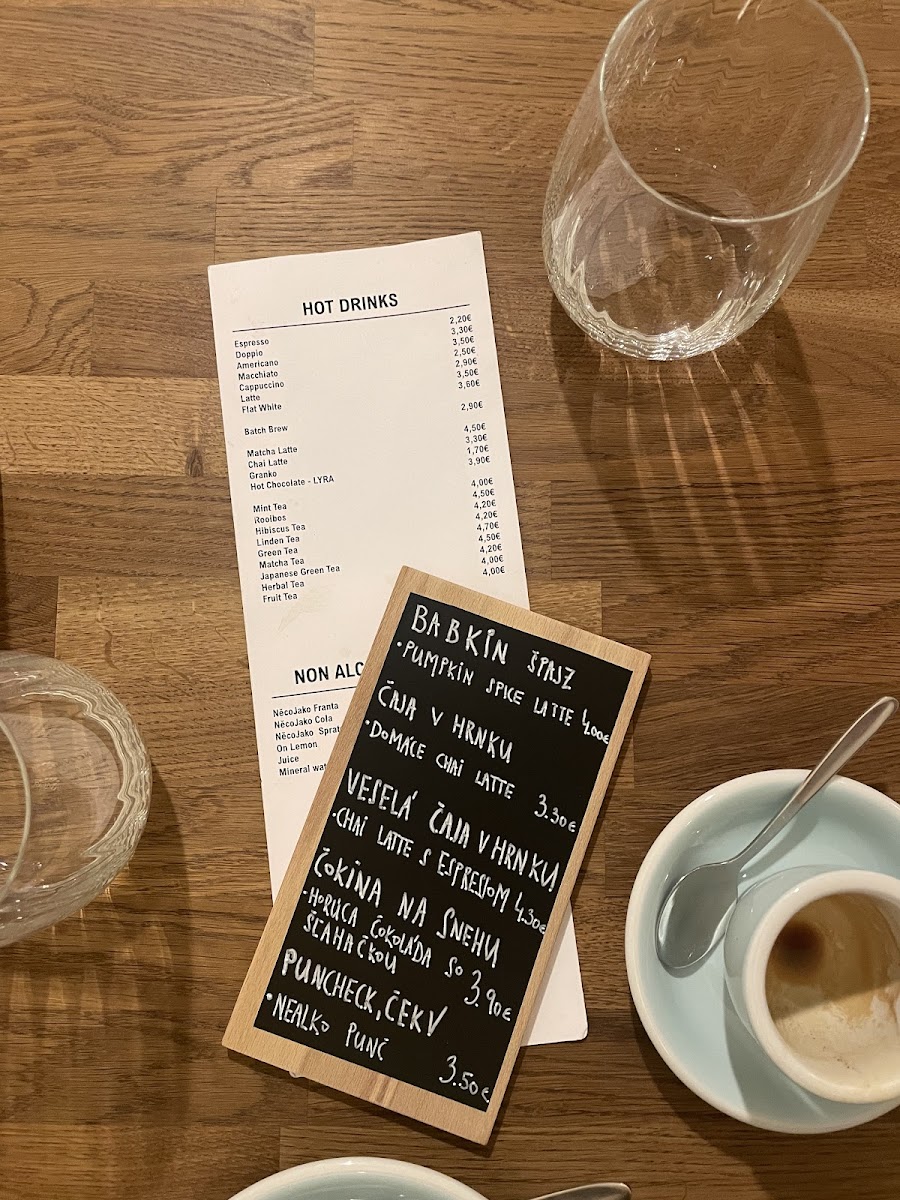 HOT DRINKS
Espresso 2,20€
Doppio 3,30€
Americano 3,50€
Macchiato 2,50€
Cappuccino 2,90€
Latte 3,50€
Flat White 3,60€
Batch Brew 2,90€
Matcha Latte 4,50€
Chai Latte 3,30€
Granko 1,70€
Hot Chocolate - LYRA 3,90€
Mint Tea 4,00€
Rooibos 4,50€
Hibiscus Tea 4,20€
Linden Tea 4,20€
Green Tea 4,70€
Matcha Tea 4,50€
Japanese Green Tea 4,20€
Herbal Tea 4,00€
Fruit Tea 4,00€
NON ALC
NěcoJako Franta
NěcoJako Cola
NěcoJako Sprat
On Lemon
Juice
Mineral wat
BABKIN ŠPAJZ
•PUMPKIN SPICE LATTE 4.00€
ČAJA V HRNKU
•DOMÁCE CHAI LATTE 3.30€
VESELÁ ČAJA V HRNKU
•CHAI LATTE S ESPRESSOM 4.30€
ČOKINA NA SNEHU
•HORÚCA ČOKOLÁDA SO
ŠĽAHAČKOU 3.90€
PUNCHECK, ČEKV
•NEALKO PUNČ
3.50€